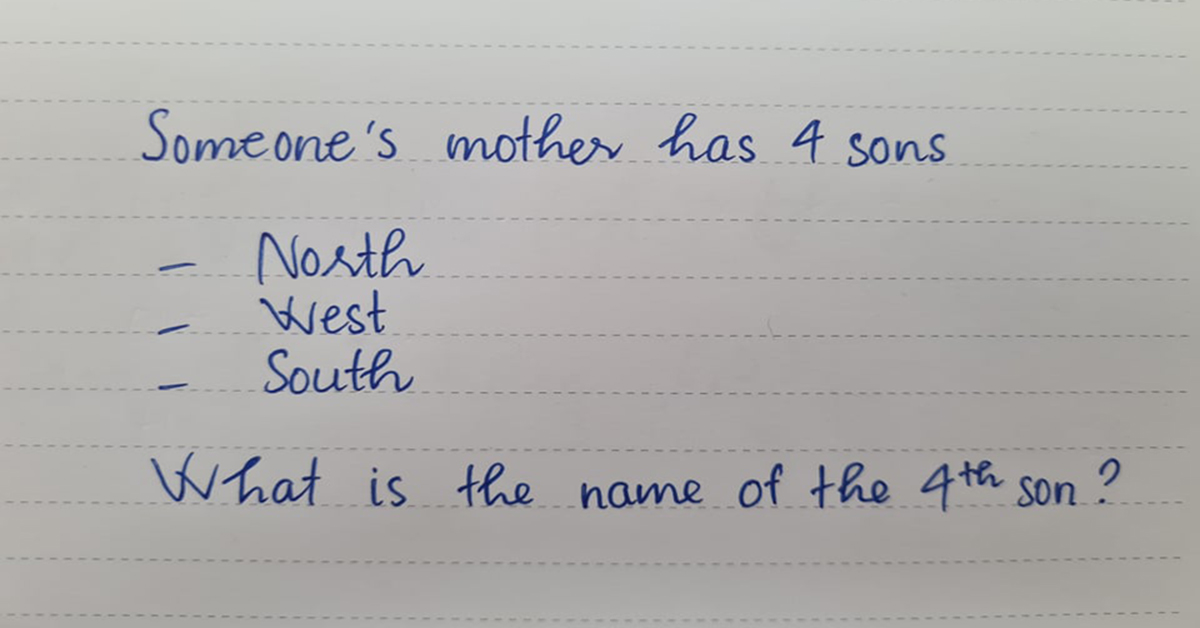 Someone's mother has 4 sons
- North
- West
- South
What is the name of the 4th son?